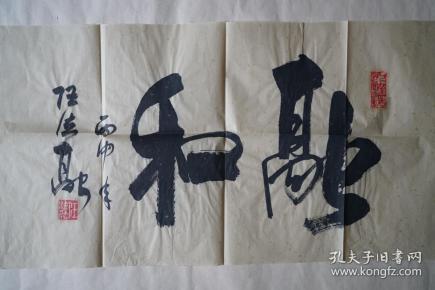 融和
丙申年
任法融
孔夫子旧书网
www.kongfz.com